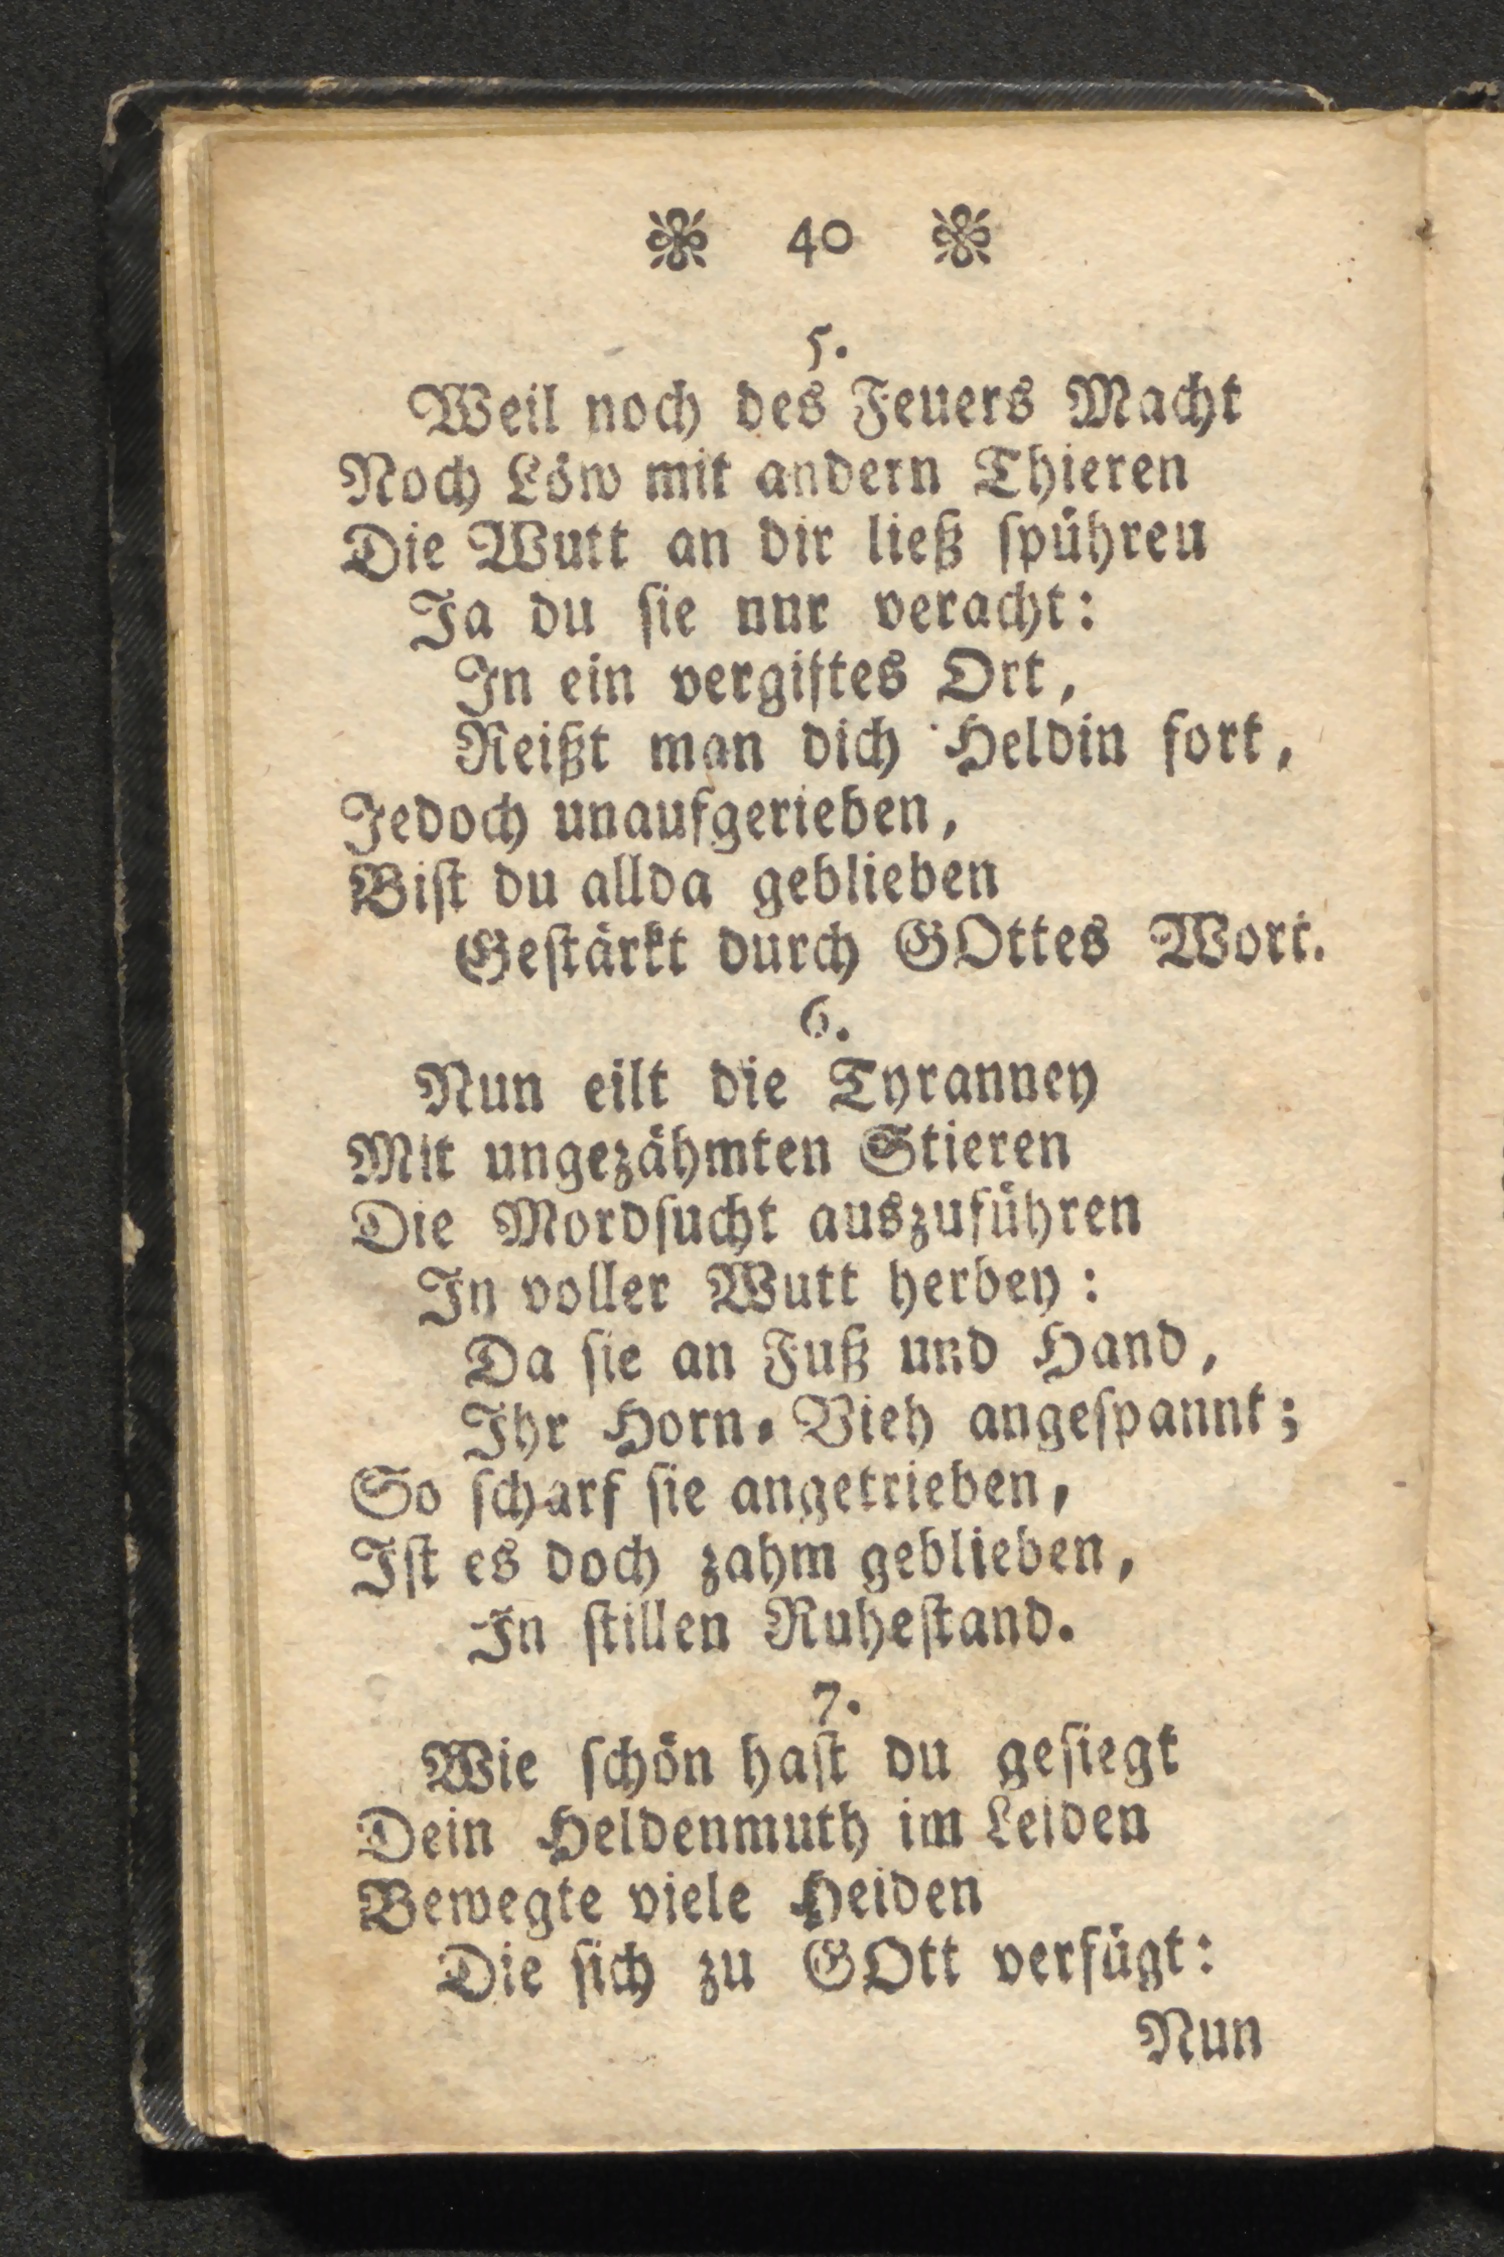 40
5.
Weil noch des Feuers Macht
Noch Löw mit andern Thieren
Die Wutt an dir ließ ſpühren
Ja du ſie nur veracht:
In ein vergiftes Ort,
Reißt man dich Heldin fort,
Jedoch unaufgerieben,
Biſt du allda geblieben
Geſtärkt durch GOttes Wort.
6.
Nun eilt die Tyranney
Mit ungezähmten Stieren
Die Mordſucht auszuführen
In voller Wutt herbey:
Da ſie an Fuß und Hand,
Ihr Horn-Vieh angeſpannt;
So ſcharf ſie angetrieben,
Iſt es doch zahm geblieben,
In ſtillen Ruheſtand.
7.
Wie ſchön haſt du geſiegt
Dein Heldenmuth im Leiden
Bewegte viele Heiden
Die ſich zu GOtt verfügt:
Nun